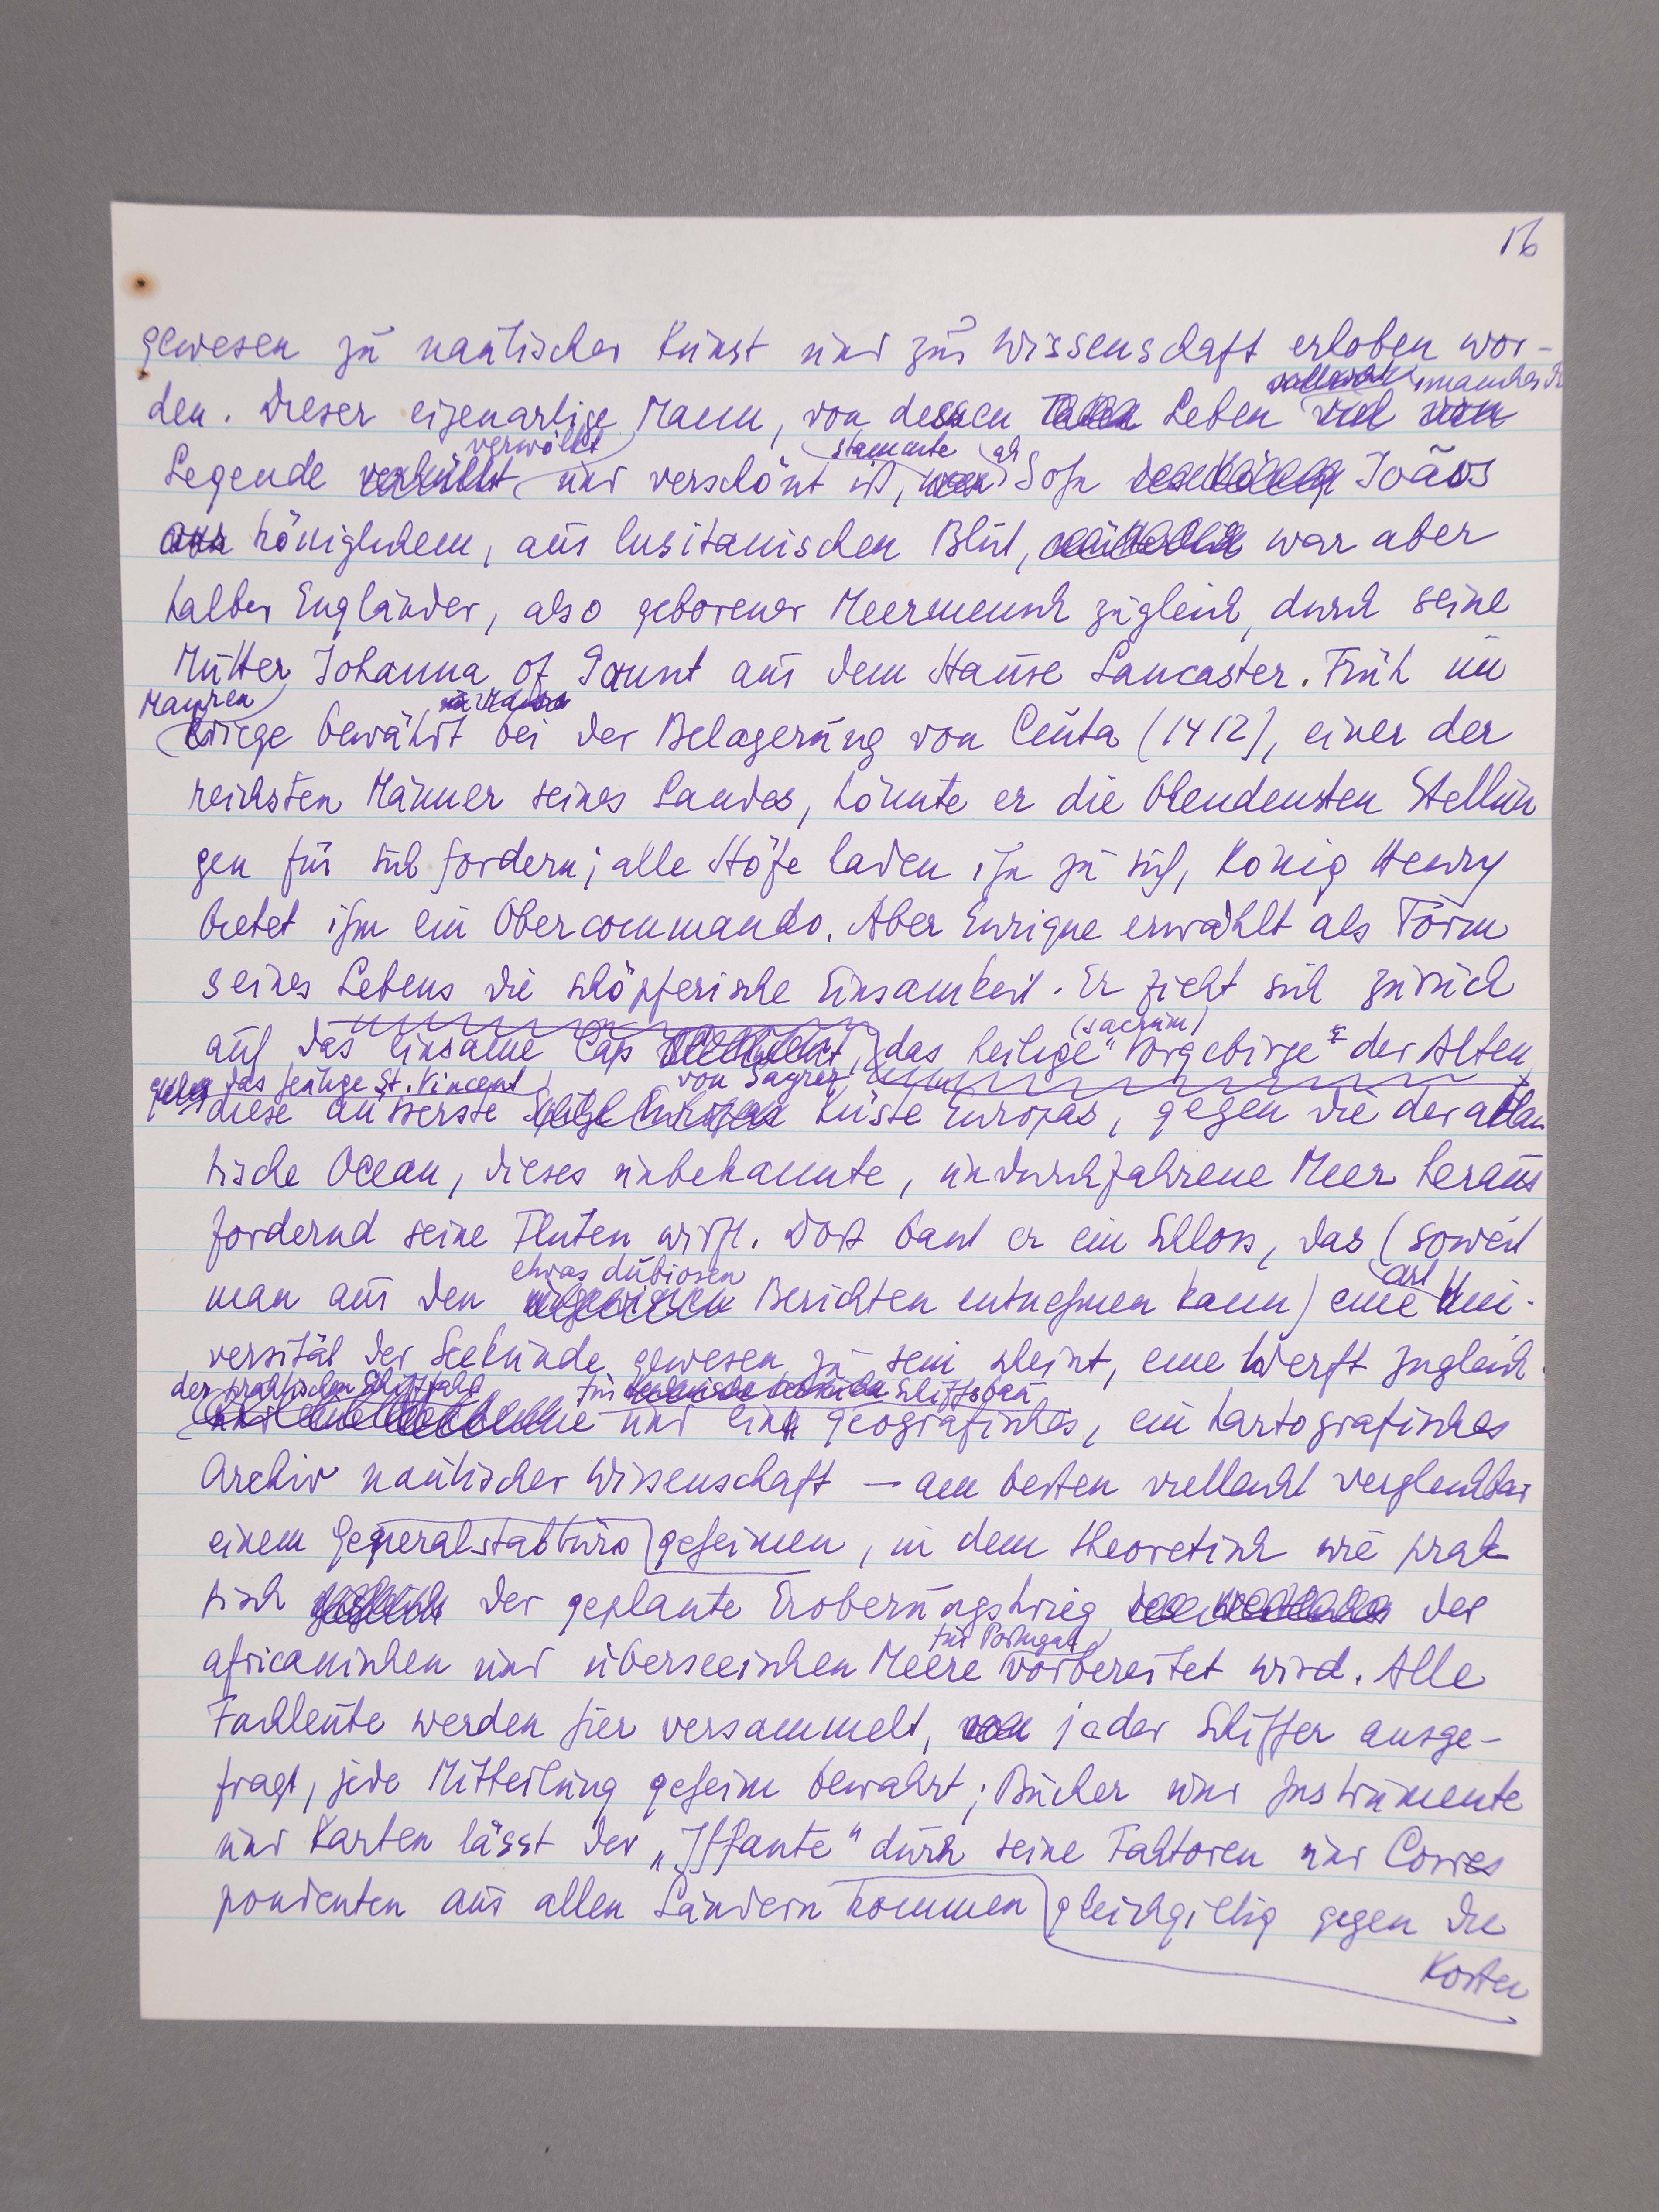 16
gewesen zu nautischer Kunst und zur Wissenschaft erhoben wor-
manches
den. Dieser eigenartige Mann, von dessen Leben
verwölkt stammte als
Legende verhüllt und verschönt ist, war Sohn Joãos
aus königlichem, aus lusitanischen Blut, war aber
halber Engländer, also geborener Meermensch zugleich, durch seine
Mutter Johanna of Gaunt aus dem Hause Lancaster. Früh im
Mauren
kriege bewährt bei der Belagerung von Ceuta (1412), einer der
reichsten Männer seines Landes, könnte er die blendensten Stellun
gen für sich fordern; alle Höfe laden ihn zu sich, König Henry
bietet ihm ein Obercommando. Aber Enrique erwählt als Form
seines Lebens die schöpferische Einsamkeit. Er zieht sich zurück
(sacrum)
auf das einsame Cap das heilige "Vorgebirge" der Alten
das heutige St. Vincent von Sagrez
diese äusserste Küste Europas, gegen die der atlan
tische Ocean, dieses unbekannte, undurchfahrene Meer heraus
fordernd seine Fluten wirft. Dort baut er ein Schloss, das (soweit
etwas dubiosen art
man aus den Berichten entnehmen kann) eine Uni-
versität der Seekunde gewesen zu sein scheint, eine Werft zugleich
der praktischen Schiffahrt für Schiffsbau
und ein geografisches, ein kartografisches
Archiv nautischer Wissenschaft – am besten vielleicht vergleichbar
einem Generalstabbüro geheimen, in dem theoretisch wie prak
tisch der geplante Eroberungskrieg der
für Portugal
africanischen und überseeischen Meere vorbereitet wird. Alle
Fachleute werden hier versammelt, jeder Schiffer ausge-
fragt, jede Mitteilung geheim bewahrt; Bücher und Instrumente
und Karten lässt der „Iffante“ durch seine Faktoren und Corres
pondenten aus allen Ländern kommen gleichgiltig gegen die
Kosten